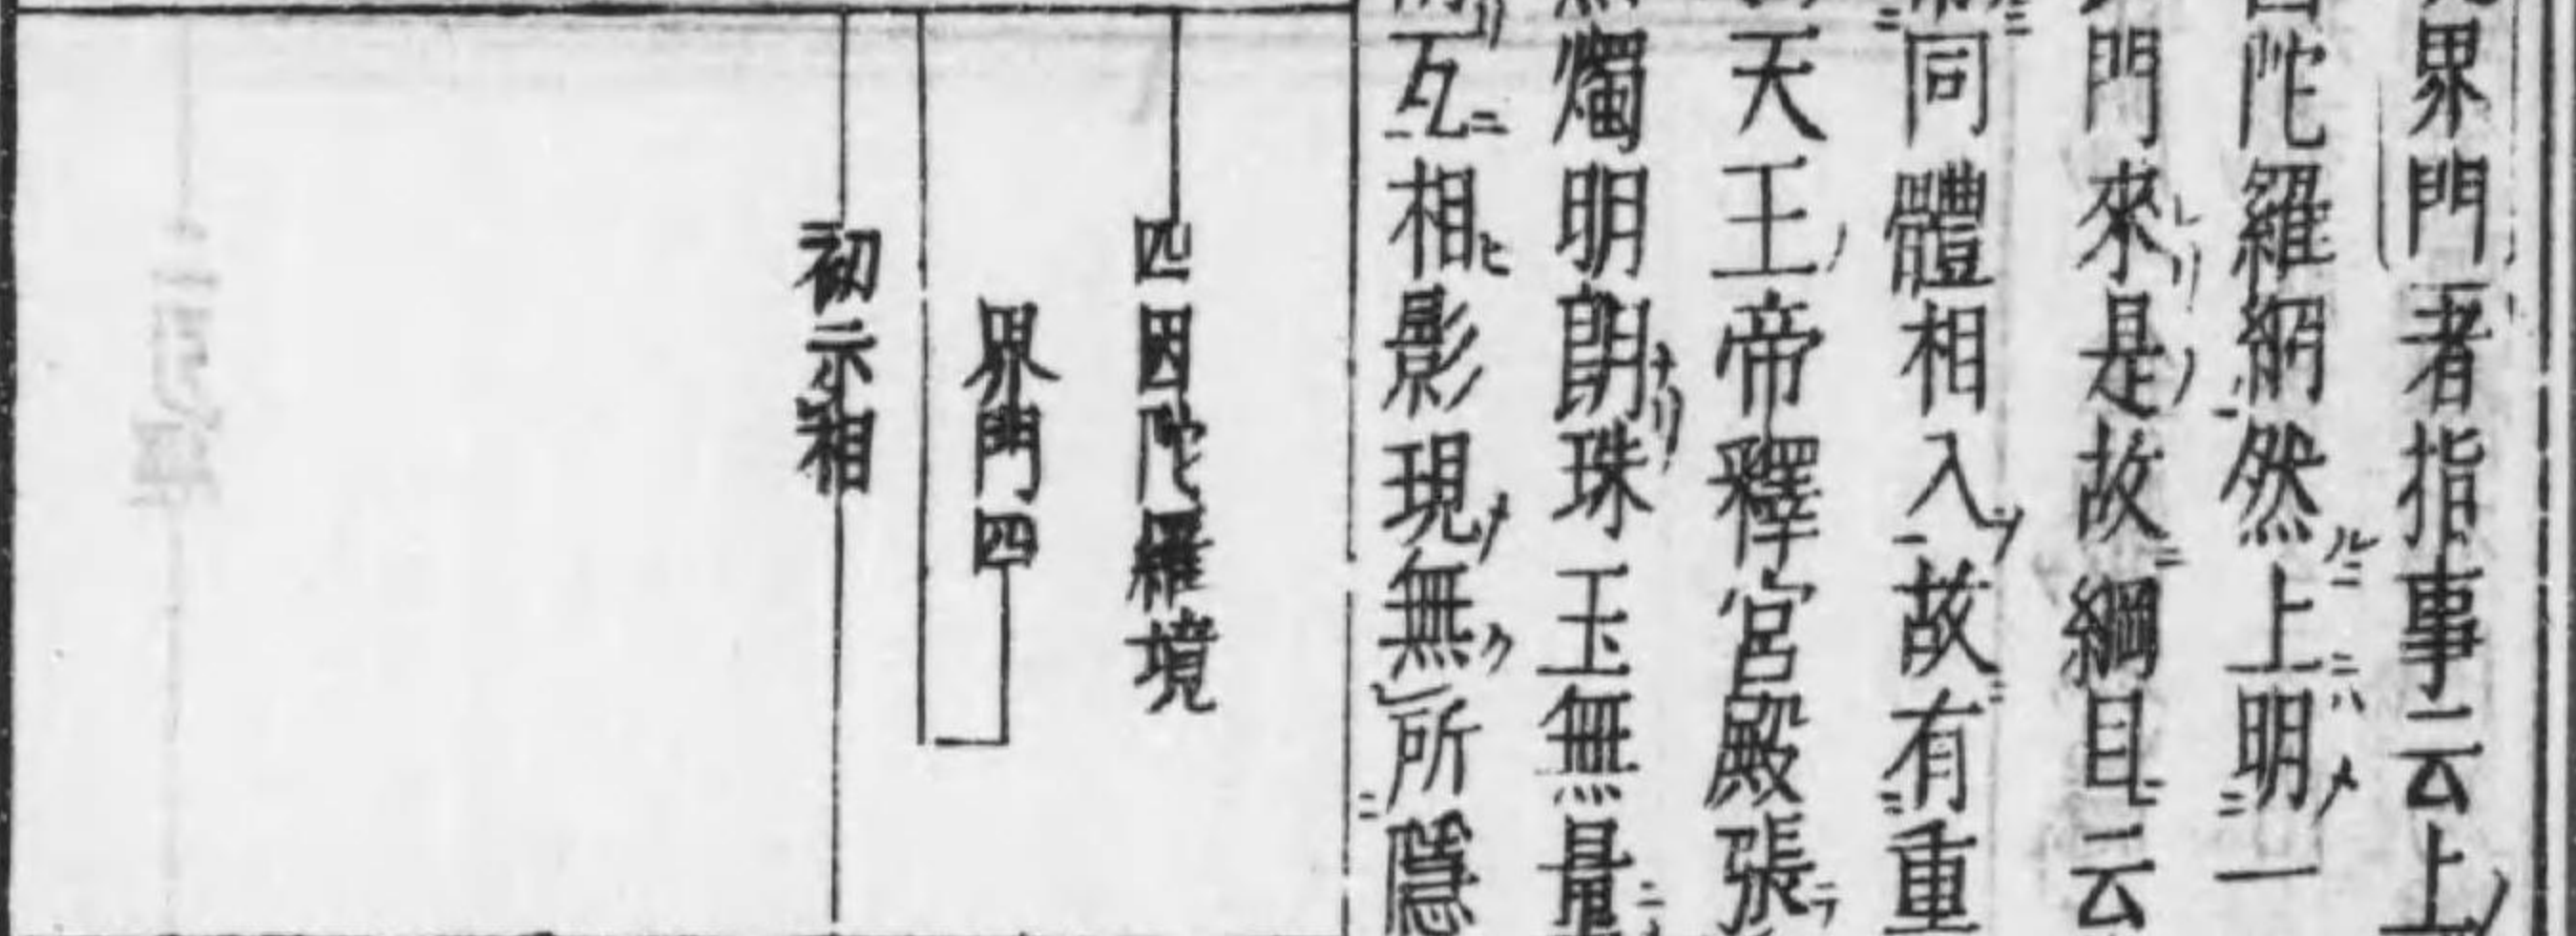 界門者指事云上
陀羅網然上明一
門來是故綱目云
同體相入故有重
天王帝釋宮殿張
燭明朗珠玉無量
互相影現無所隱
四因陀羅境
界門四
初示相